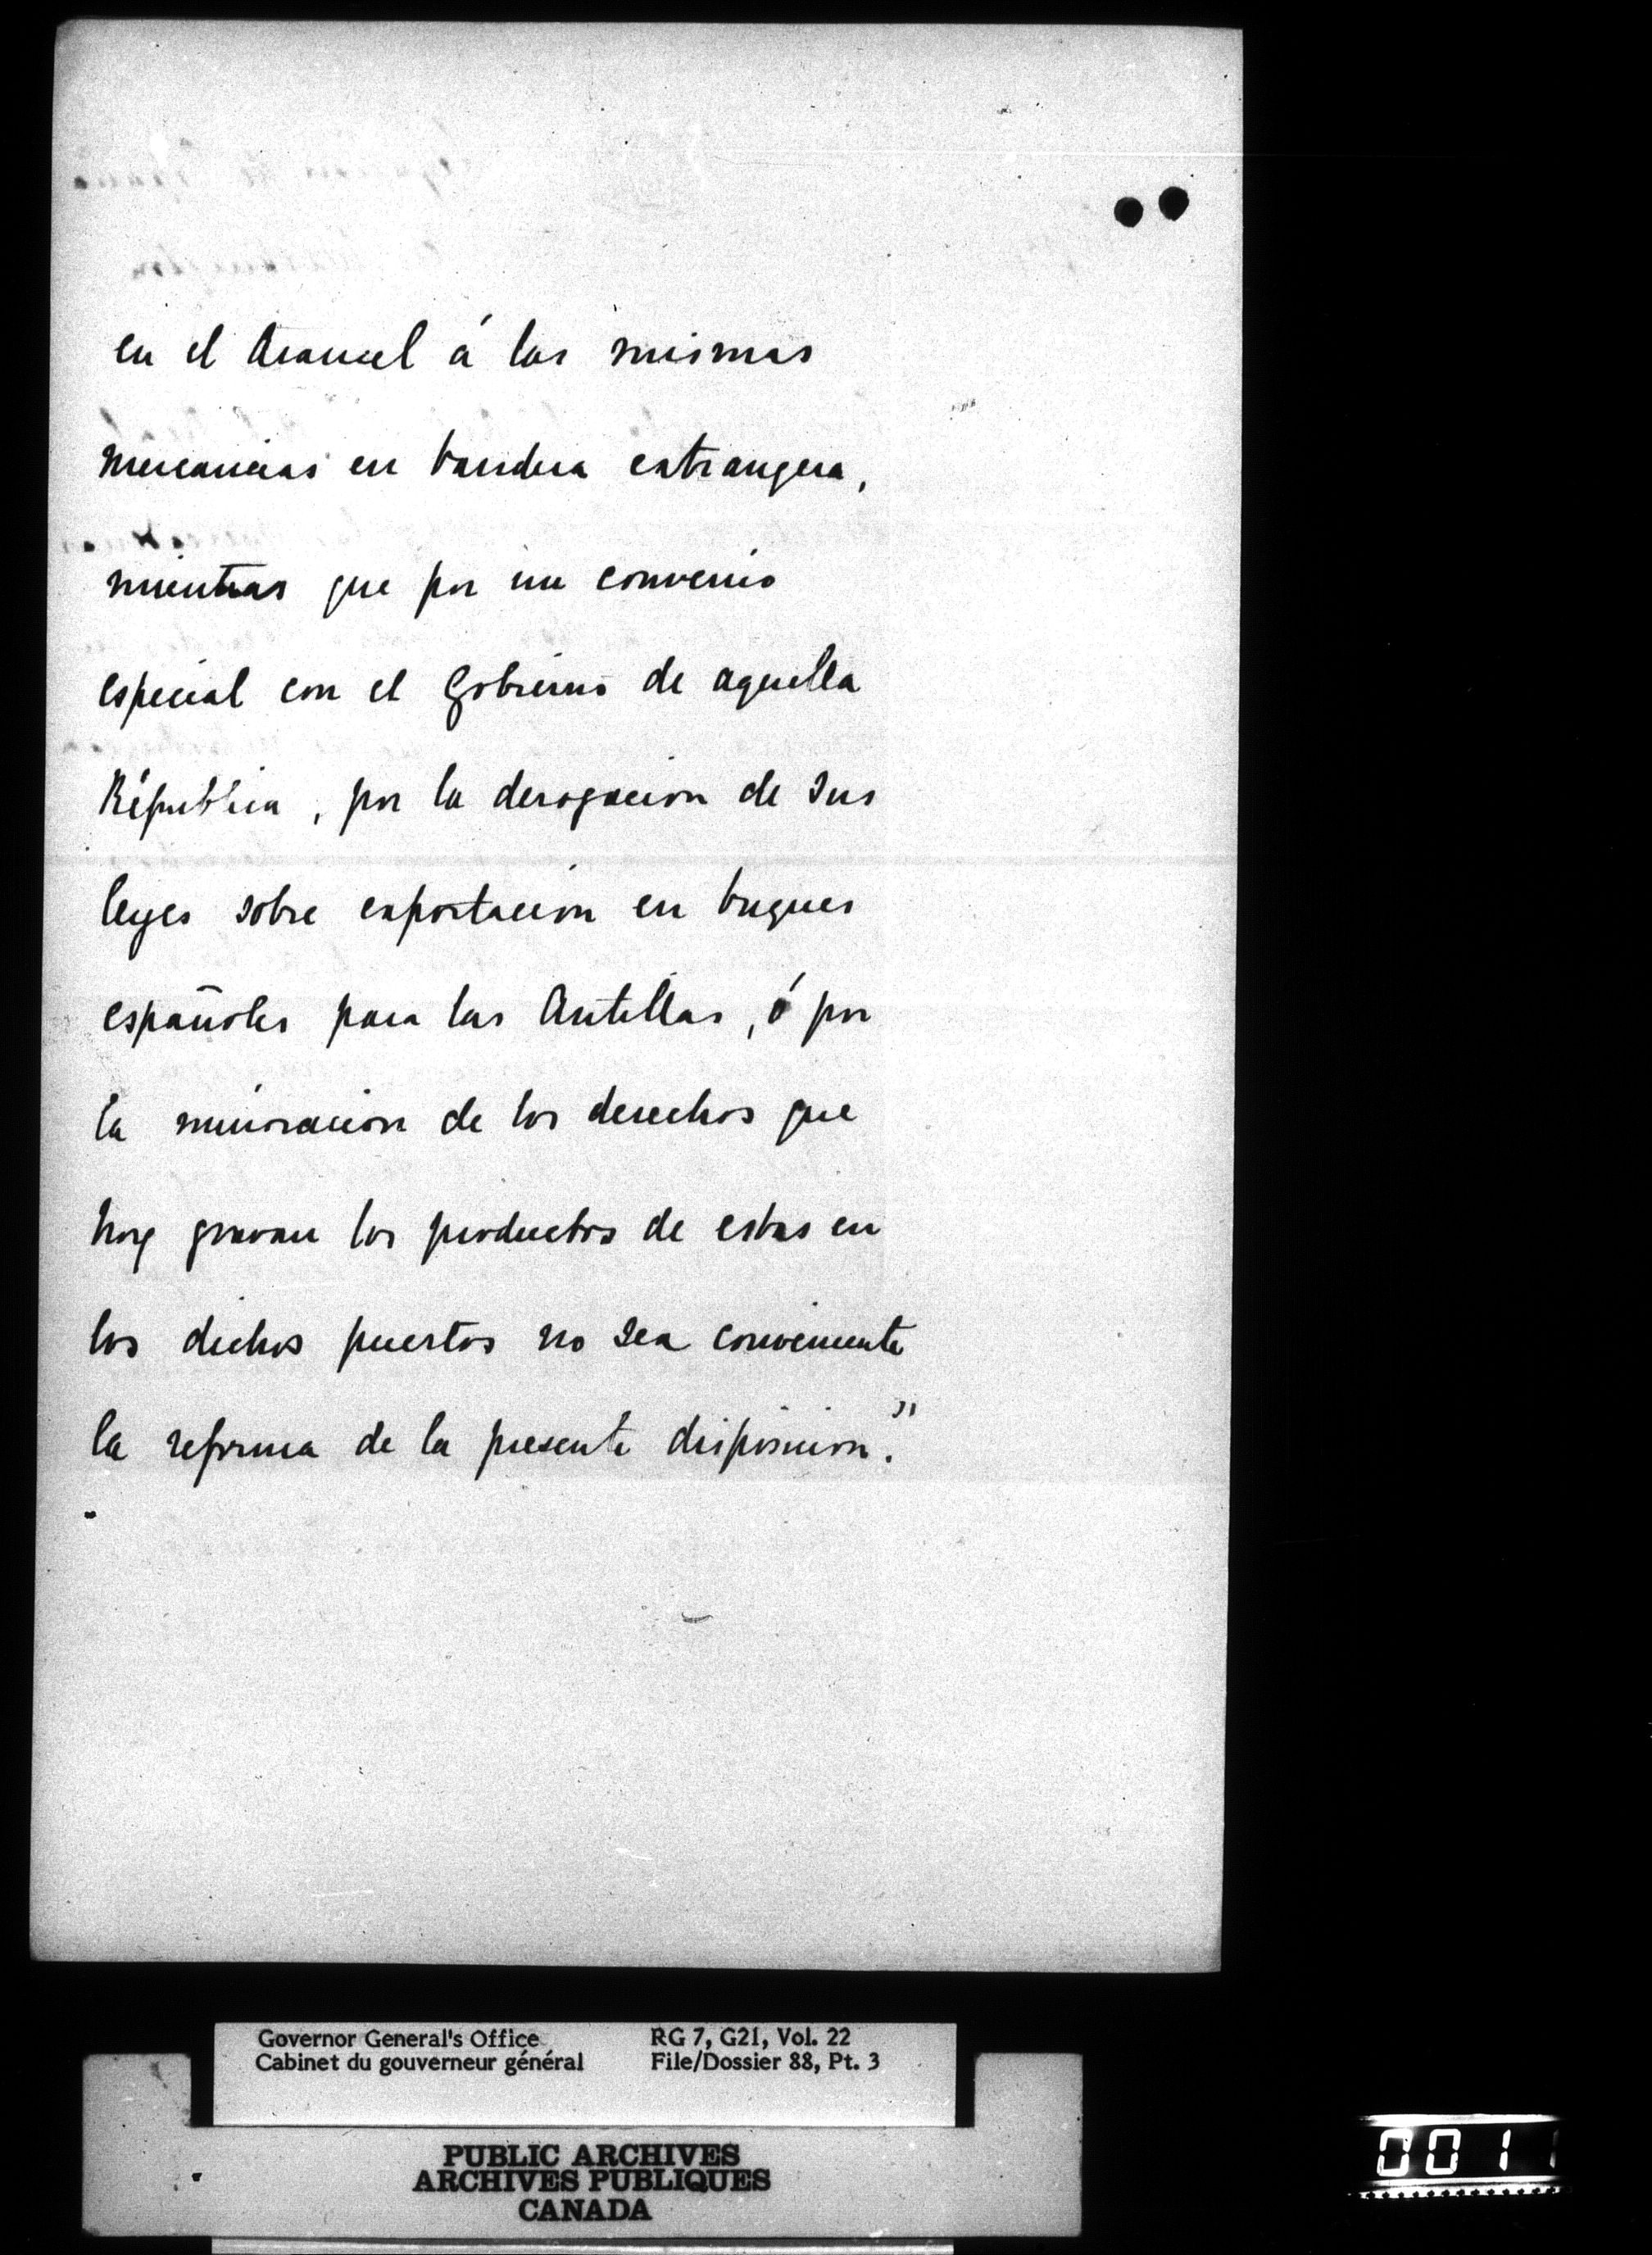 en el Arancel á las mismas
mercancias en bandera extrangera,
mientras que por un convenio
especial con el Gobierno de aquella
Républica, por la derogacion de sus
leyes sobre exportacion en buques
españoles para las Antillas, ó por
la minoracion de los derechos que
hoy gravan los productos de estas en
los dichos puertos no sea conveniente
la reforma de la presente disposicion."
Governor General's Office RG 7, G21, Vol. 22
Cabinet du gouverneur général File/Dossier 88, Pt. 3
PUBLIC ARCHIVES
ARCHIVES PUBLIQUES
CANADA
001